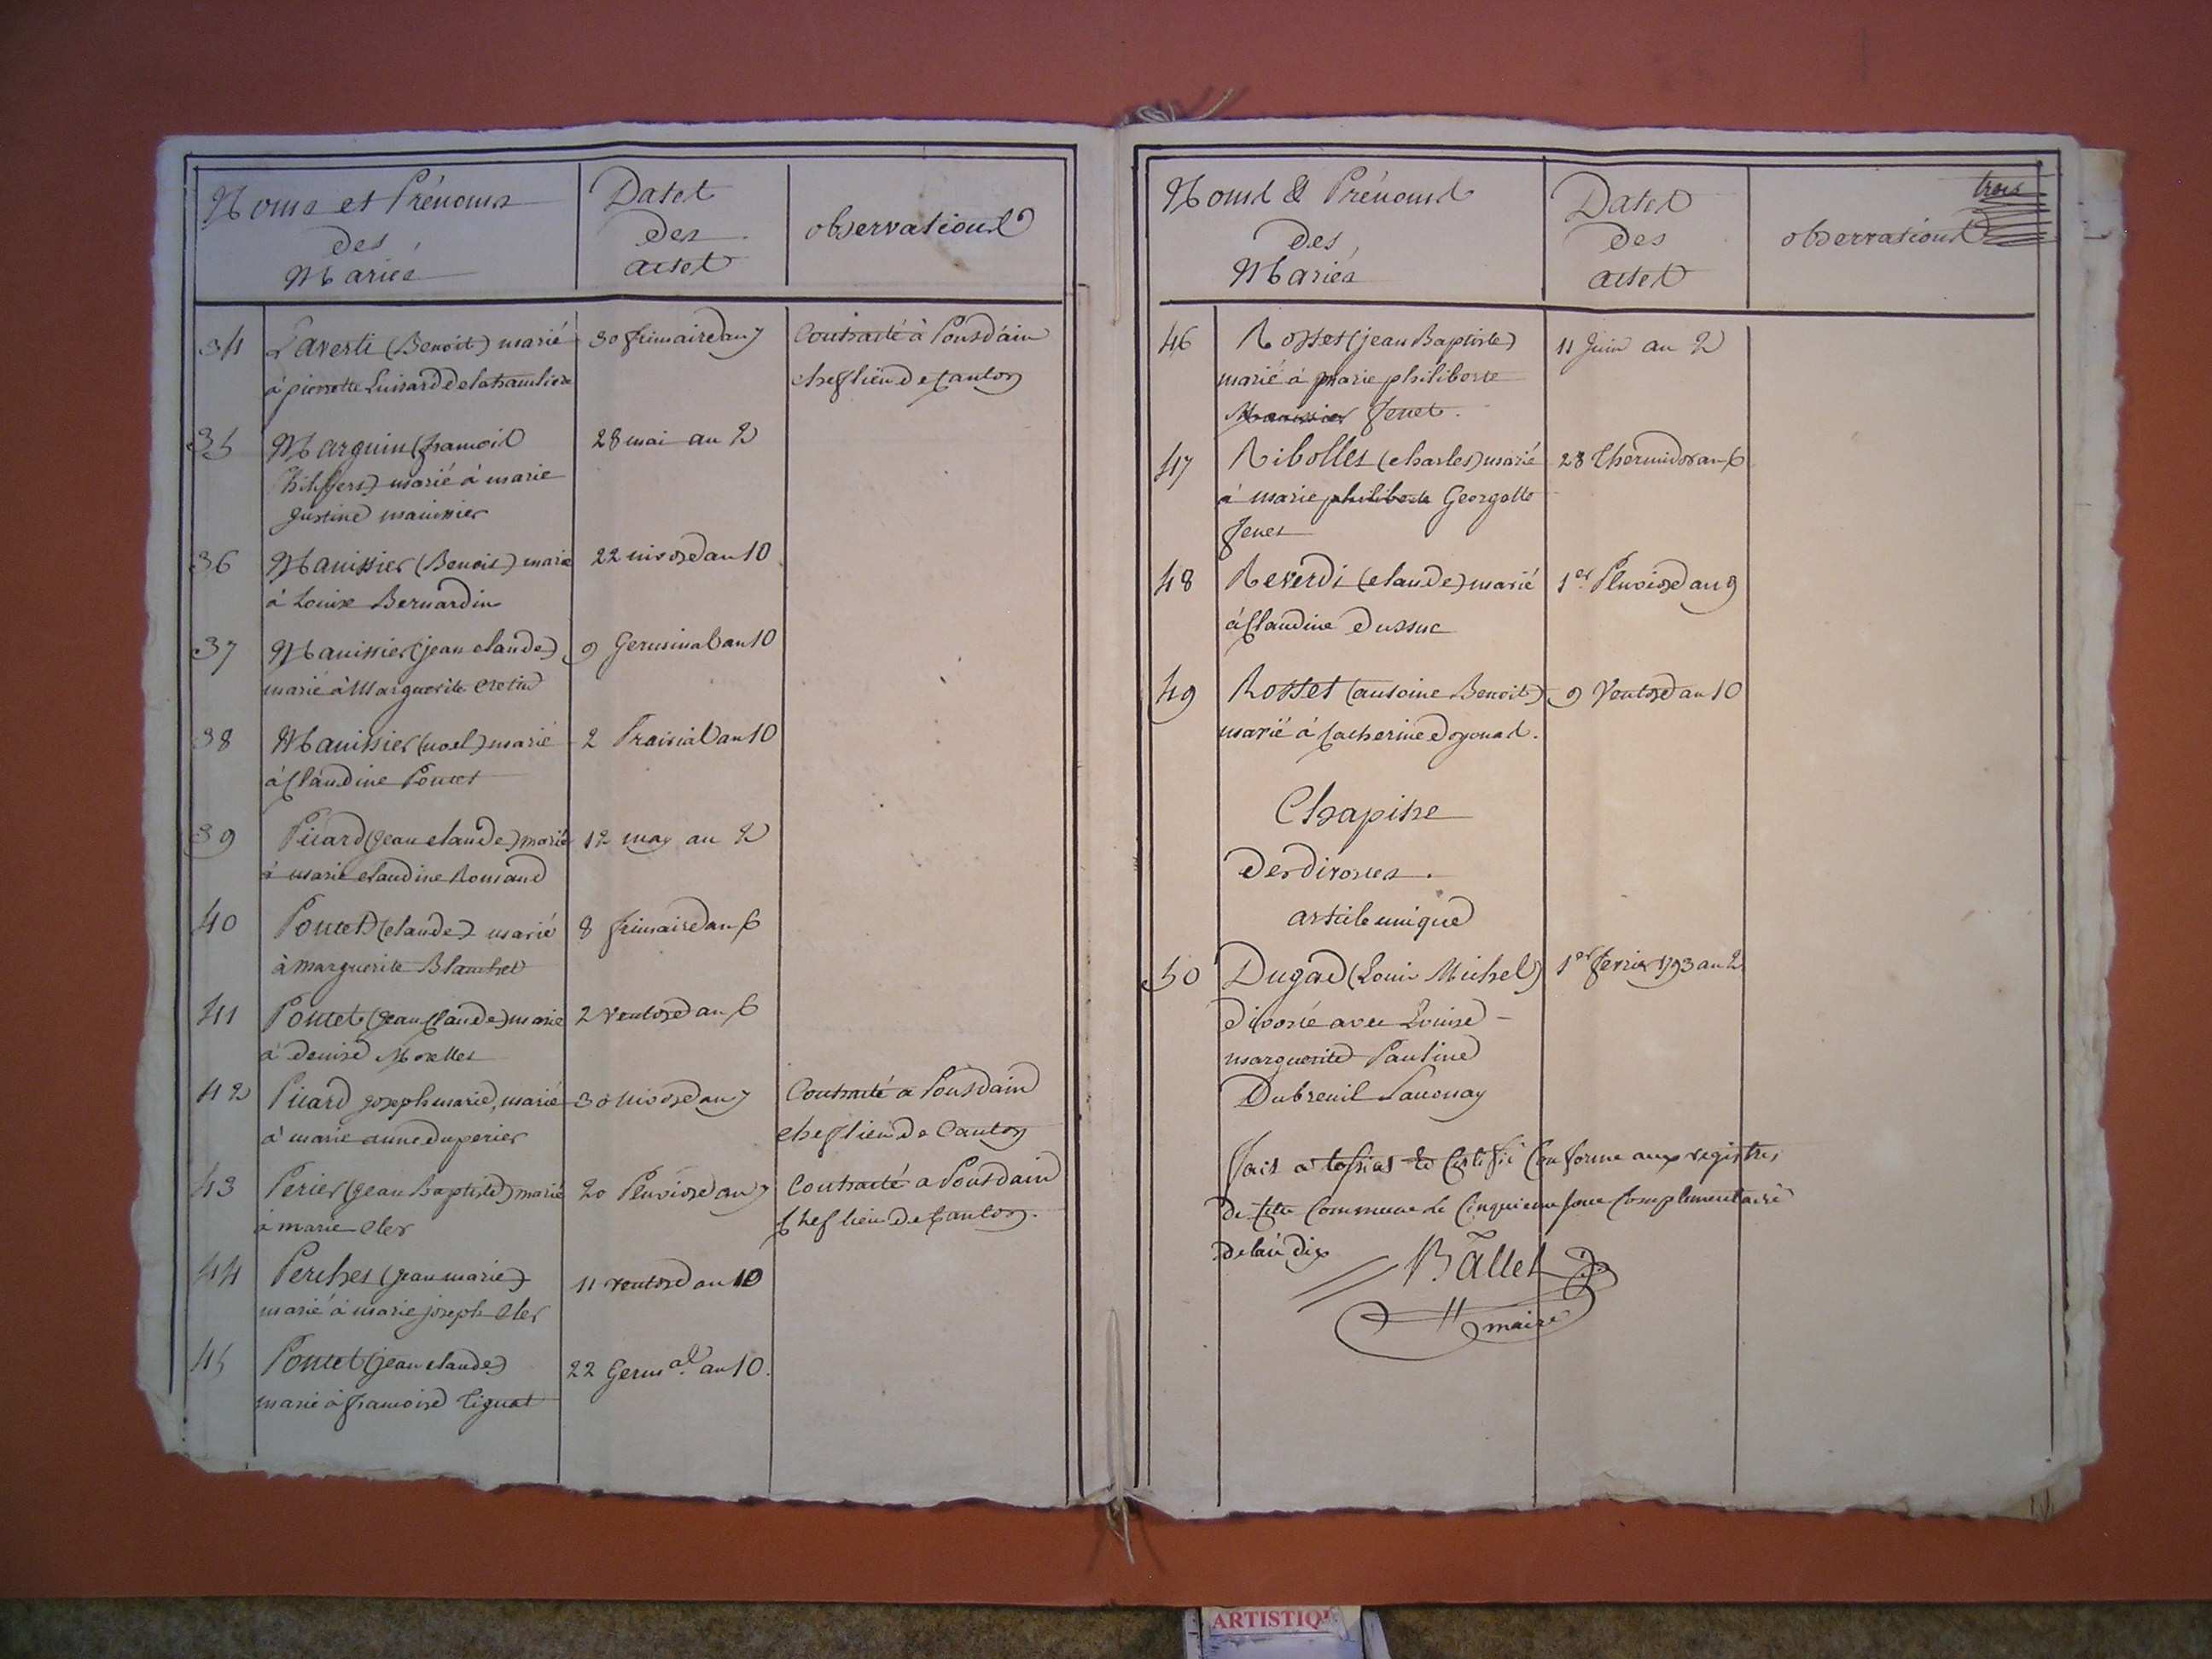 Noms et Prénoms
des
Mariés
Dates
des
actes
observations
34 Laverti (Benoit) marié 30 frimaire an 7 Contracté à Pontdain
à pierrette chef lieu de Canton
35 Marguin (francois 28 mai an 2
marié à marie
Justine manissier
36 Manissier (Benoit) marié 22 nivose an 10
à Louise Bernardin
37 Manissier (jean claude) 9 Germinal an 10
marié à Marguerite cretin
38 Manissier (noel) marié 2 Prairial an 10
à Claudine Poncet
39 Picard (jean claude) marié 12 may an 2
à marie claudine Romand
40 Poncet (claude) marié 8 frimaire an 6
à marguerite Blanchet
41 Poncet (jean Claude) marié 2 ventose an 6
à denise Morellet
42 Picard joseph marie, marié 30 nivose an 7 Contracté a Pontdain
à marie anne duperier chef lieu de Canton
43 Perier (jean Baptiste) marié 20 Pluviose an 7 Contracté a Pontdain
à marie cler Chef lieu de Canton.
44 Perches (jean marie) 11 ventose an 10
marié à marie joseph cler
45 Poncet (jean claude) 22 Germ.al an 10.
marié à francoise Tignat
trois
Noms & Prénoms
des
Mariés
Dates
des
actes
observations
46 Rosset (jean Baptiste) 11 Juin an 2
marié à marie philiberte
Manissier Jenet.
47 Ribollet (charles) marié 28 Thermidor an 6
à marie philiberte Georgette
Jenet
48 Reverdi (claude) marié 1er Pluviose an 9
à Claudine dussuc
49 Rosset (antoine Benoit) 9 Ventose an 10
marié à Catherine
Chapitre
des divorces.
article unique
50 Dugad (Louis Michel) 1er fevrier 1793 an 2
divorcé avec Louise
marguerite Pauline
Dubreuil
fait a certifié Conforme aux registres
de cette Commune le Cinquieme jour Complementaire
de l'an dix
Ballet
maire
ARTISTIQU